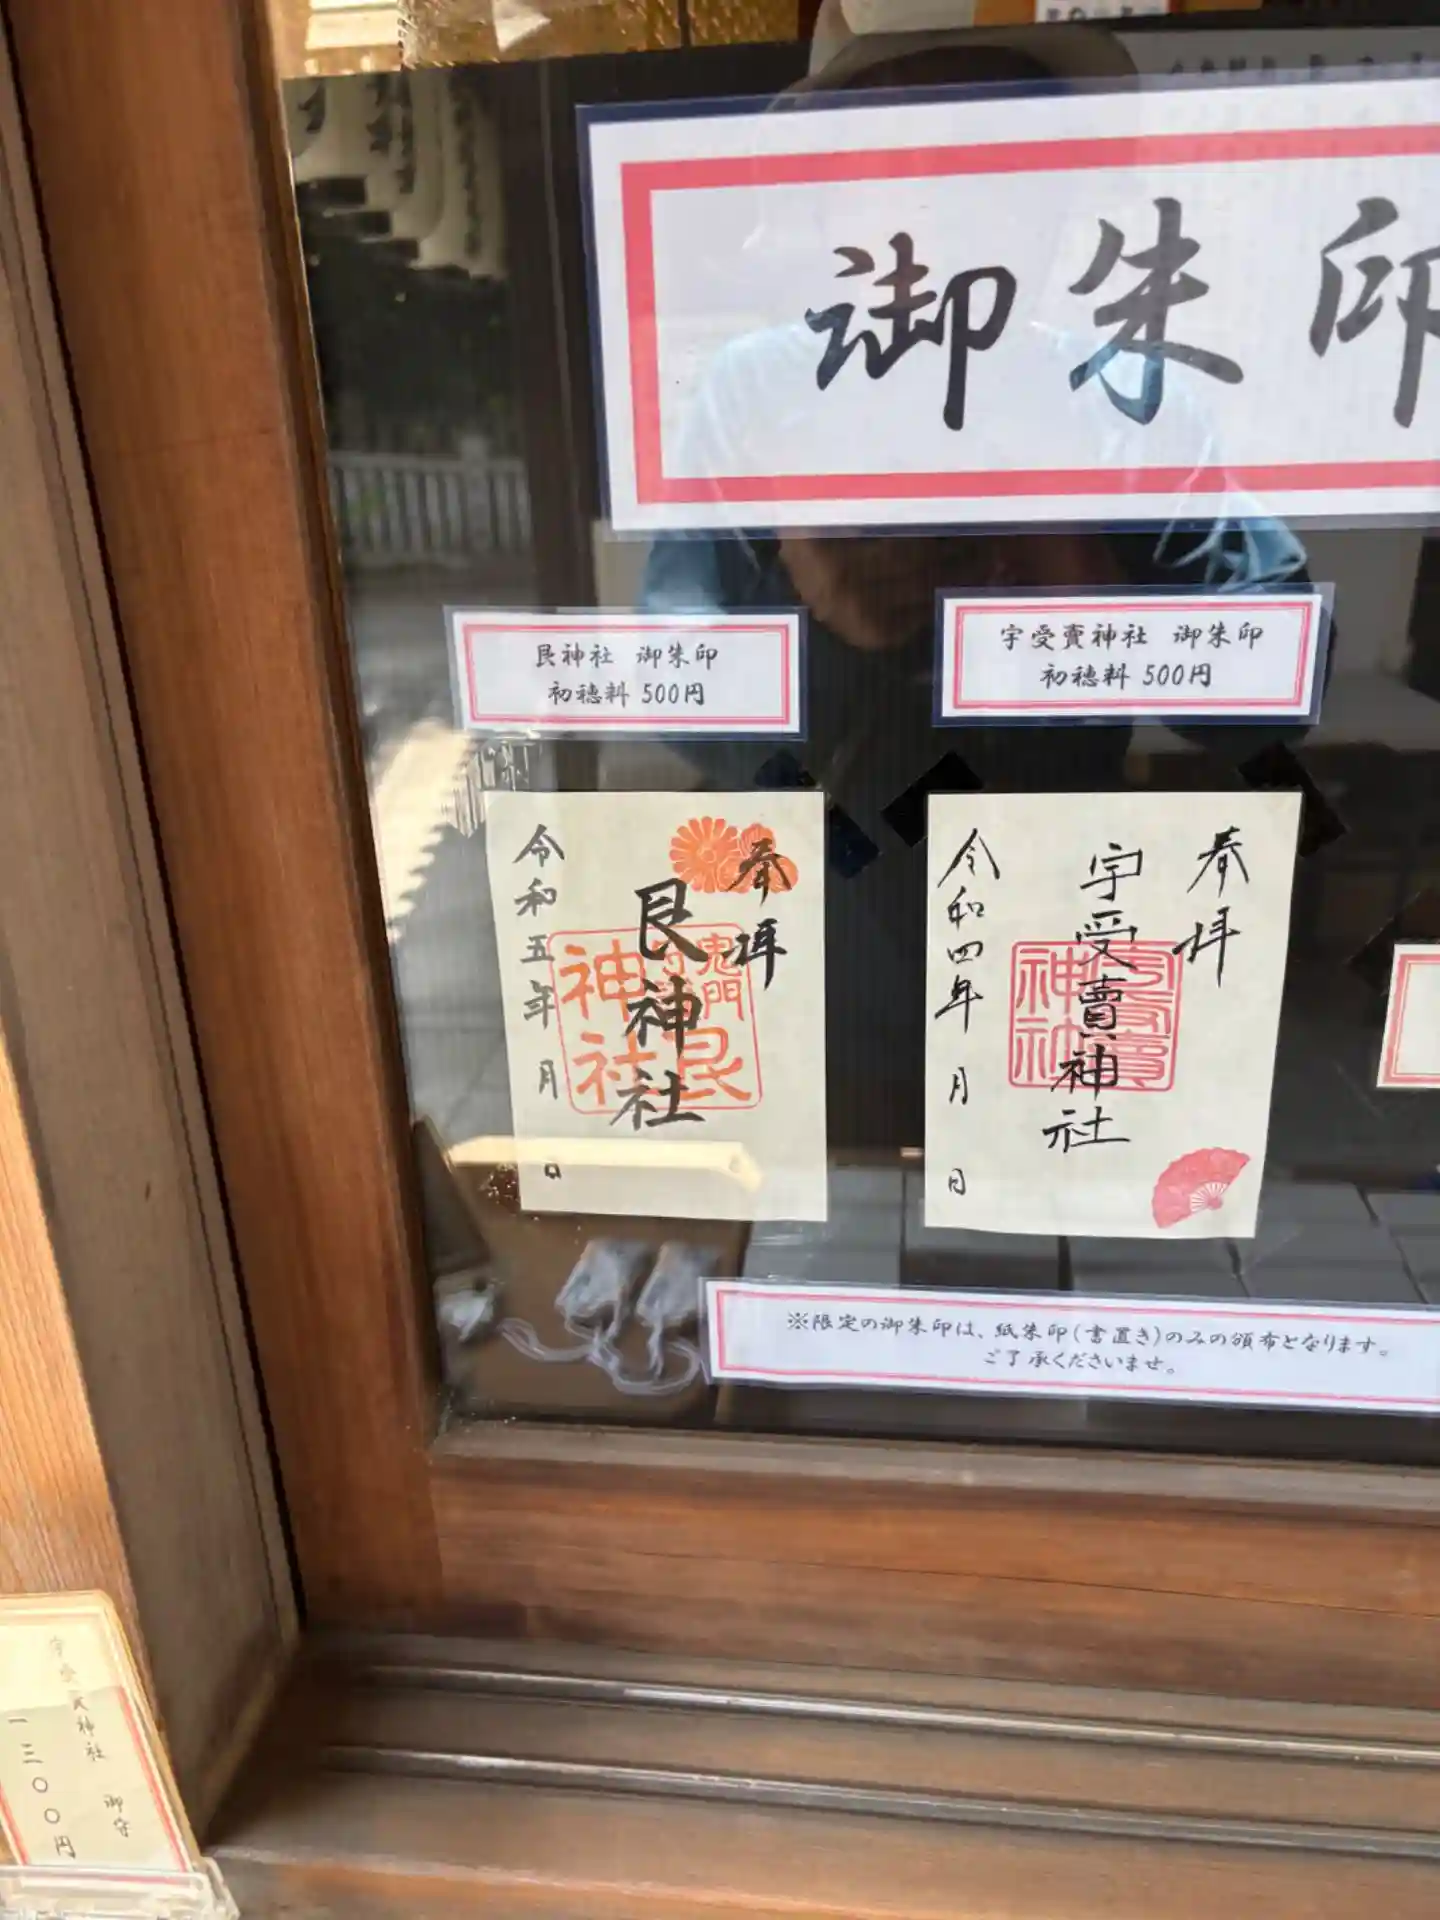 御朱印
艮神社 御朱印
初穂料 500円
宇受賣神社 御朱印
初穂料 500円
奉拝
艮神社
令和五年 月 日
鬼門
艮
神社
奉拝
宇受賣神社
令和四年 月 日
神社
※限定の御朱印は、紙朱印(書置き)のみの頒布となります。
ご了承くださいませ。
宇受賣神社 御守
一三〇〇円